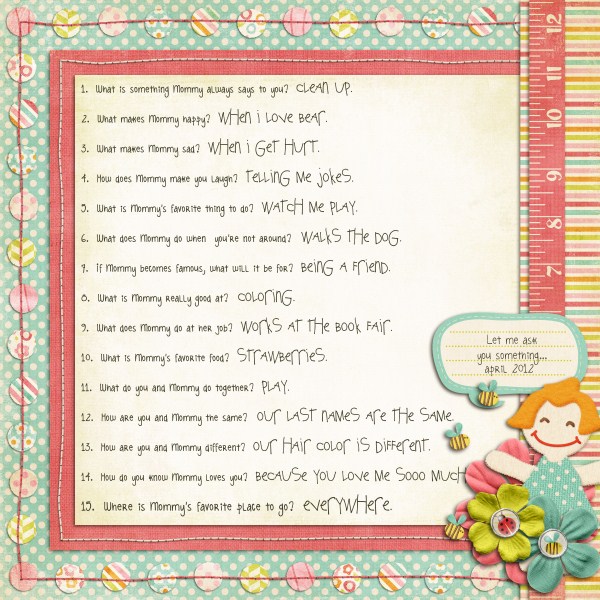 1. What is something Mommy always says to you? Clean up.
2. What makes Mommy happy? When I love Bear.
3. What makes Mommy sad? When I get hurt.
4. How does Mommy make you laugh? Telling me jokes.
5. What is Mommy's favorite thing to do? Watch me play.
6. What does Mommy do when you're not around? Walks the dog.
7. If Mommy becomes famous, what will it be for? Being a friend.
8. What is Mommy really good at? Coloring.
9. What does Mommy do at her job? Works at the book fair.
10. What is Mommy's favorite food? Strawberries.
11. What do you and Mommy do together? Play.
12. How are you and Mommy the same? Our last names are the same.
13. How are you and Mommy different? Our hair color is different.
14. How do you know Mommy loves you? Because you love me sooo much
15. Where is Mommy's favorite place to go? Everywhere.
12
11
10
9
8
7
Let me ask
you something...
april 2012